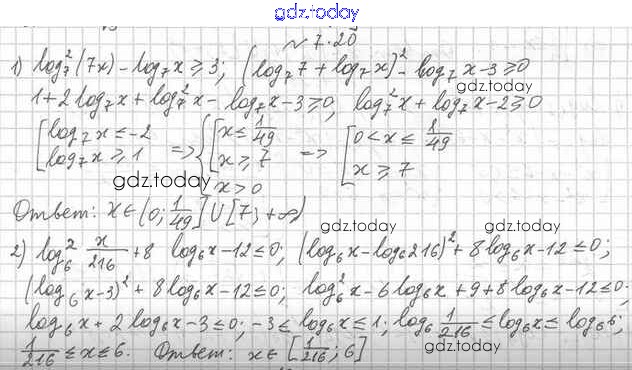 gdz.today
№ 7.20
1) log₇²(7x) - log₇x ≥ 3; (log₇7 + log₇x)² - log₇x - 3 ≥ 0
1 + 2log₇x + log₇²x - log₇x - 3 ≥ 0; log₇²x + log₇x - 2 ≥ 0
[log₇x ≤ -2 => {[x ≤ 1/49 => [0 < x ≤ 1/49
log₇x ≥ 1 x ≥ 7 x ≥ 7
gdz.today x > 0
Ответ: x ∈ (0; 1/49] ∪ [7; +∞)
gdz.today gdz.today
2) log₆² x/216 + 8 log₆x - 12 ≤ 0; (log₆x - log₆216)² + 8log₆x - 12 ≤ 0;
(log₆x - 3)² + 8log₆x - 12 ≤ 0; log₆²x - 6log₆x + 9 + 8log₆x - 12 ≤ 0;
log₆x + 2log₆x - 3 ≤ 0; -3 ≤ log₆x ≤ 1; log₆ 1/216 ≤ log₆x ≤ log₆6;
1/216 ≤ x ≤ 6. Ответ: x ∈ [1/216; 6]
gdz.today